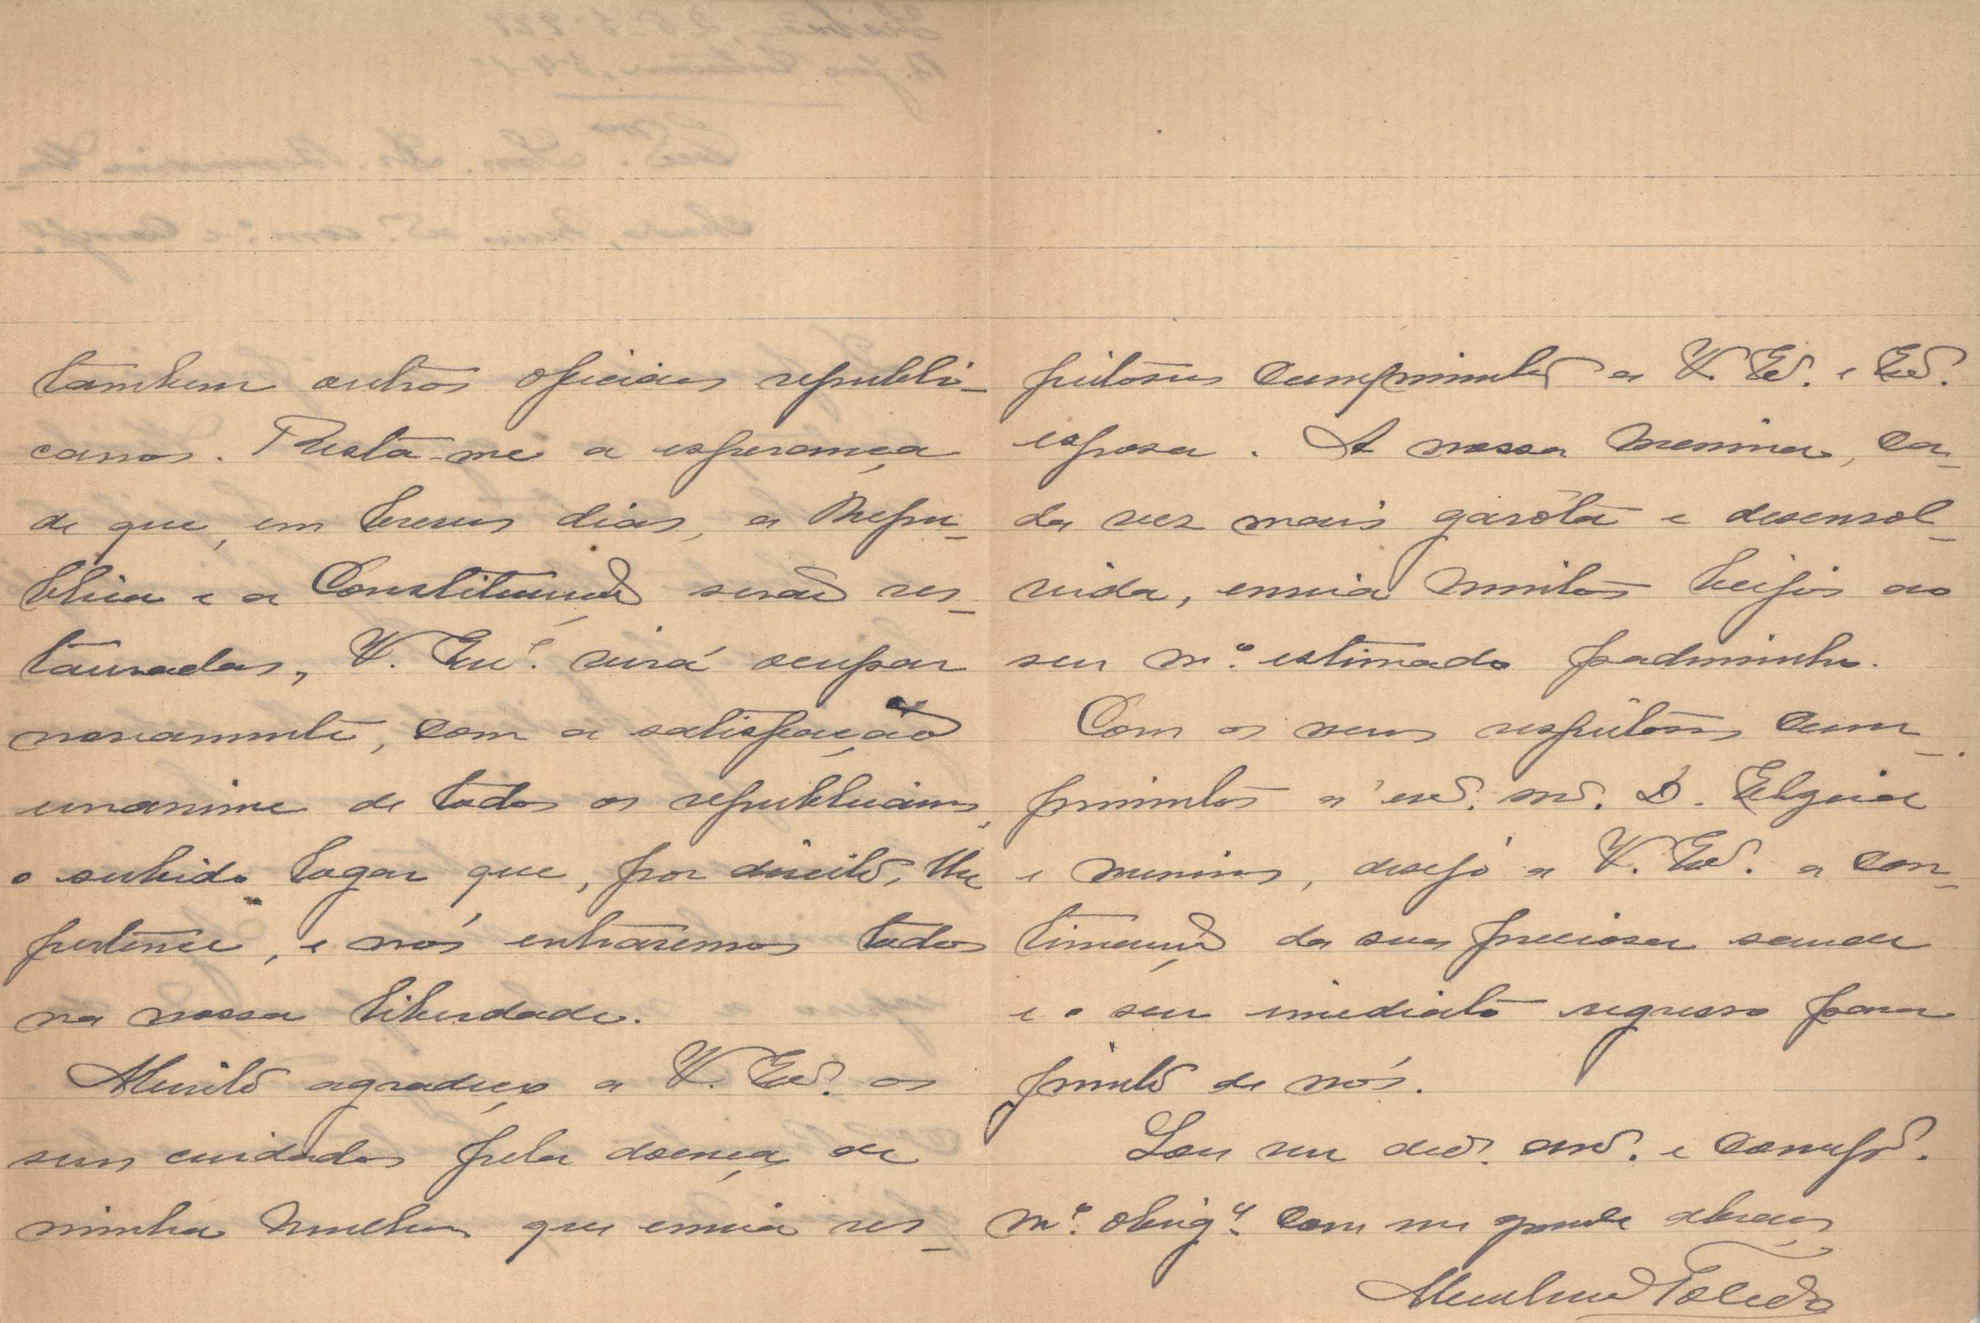 tambem outros oficiaes republi-
canos. Resta-me a esperança
de que, em breves dias, a Repu-
blica e a Constituição serão res-
tauradas, V. Exª. virá ocupar
novamente, com a satisfação
unanime de todos os republicanos,
o subido logar que, por direito, lhe
pertence, e nós entraremos todos
na nossa liberdade.
Muito agradeço a V. Exª. os
seus cuidados pela doença de
minha mulher que envia res-
peitosos cumprimentos a V. Exª. e Exª.
esposa. A nossa menina, ca-
da vez mais garôta e desenvol-
vida, envia muitos beijos ao
seu mº. estimado padrinho.
Com os meus respeitosos cum-
primentos á exª. srª. D. Elzira
e meninos, desejo a V. Exª. a con-
tinuação da sua preciosa saude
e o seu imediato regresso para
junto de nós.
Sou seu dedº. amº. e
mº. obrigº. com um grande abraço
Toledo